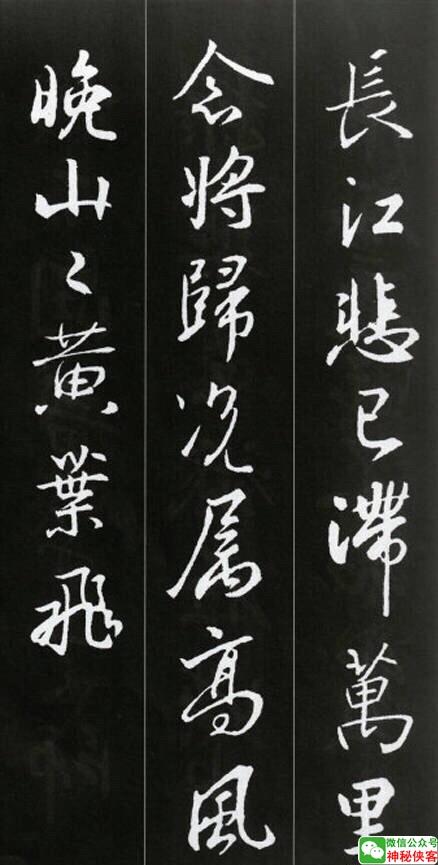 長江悲已滯萬里
念將歸况属高風
晚山〻黄葉飛
微信公众号
神秘侠客